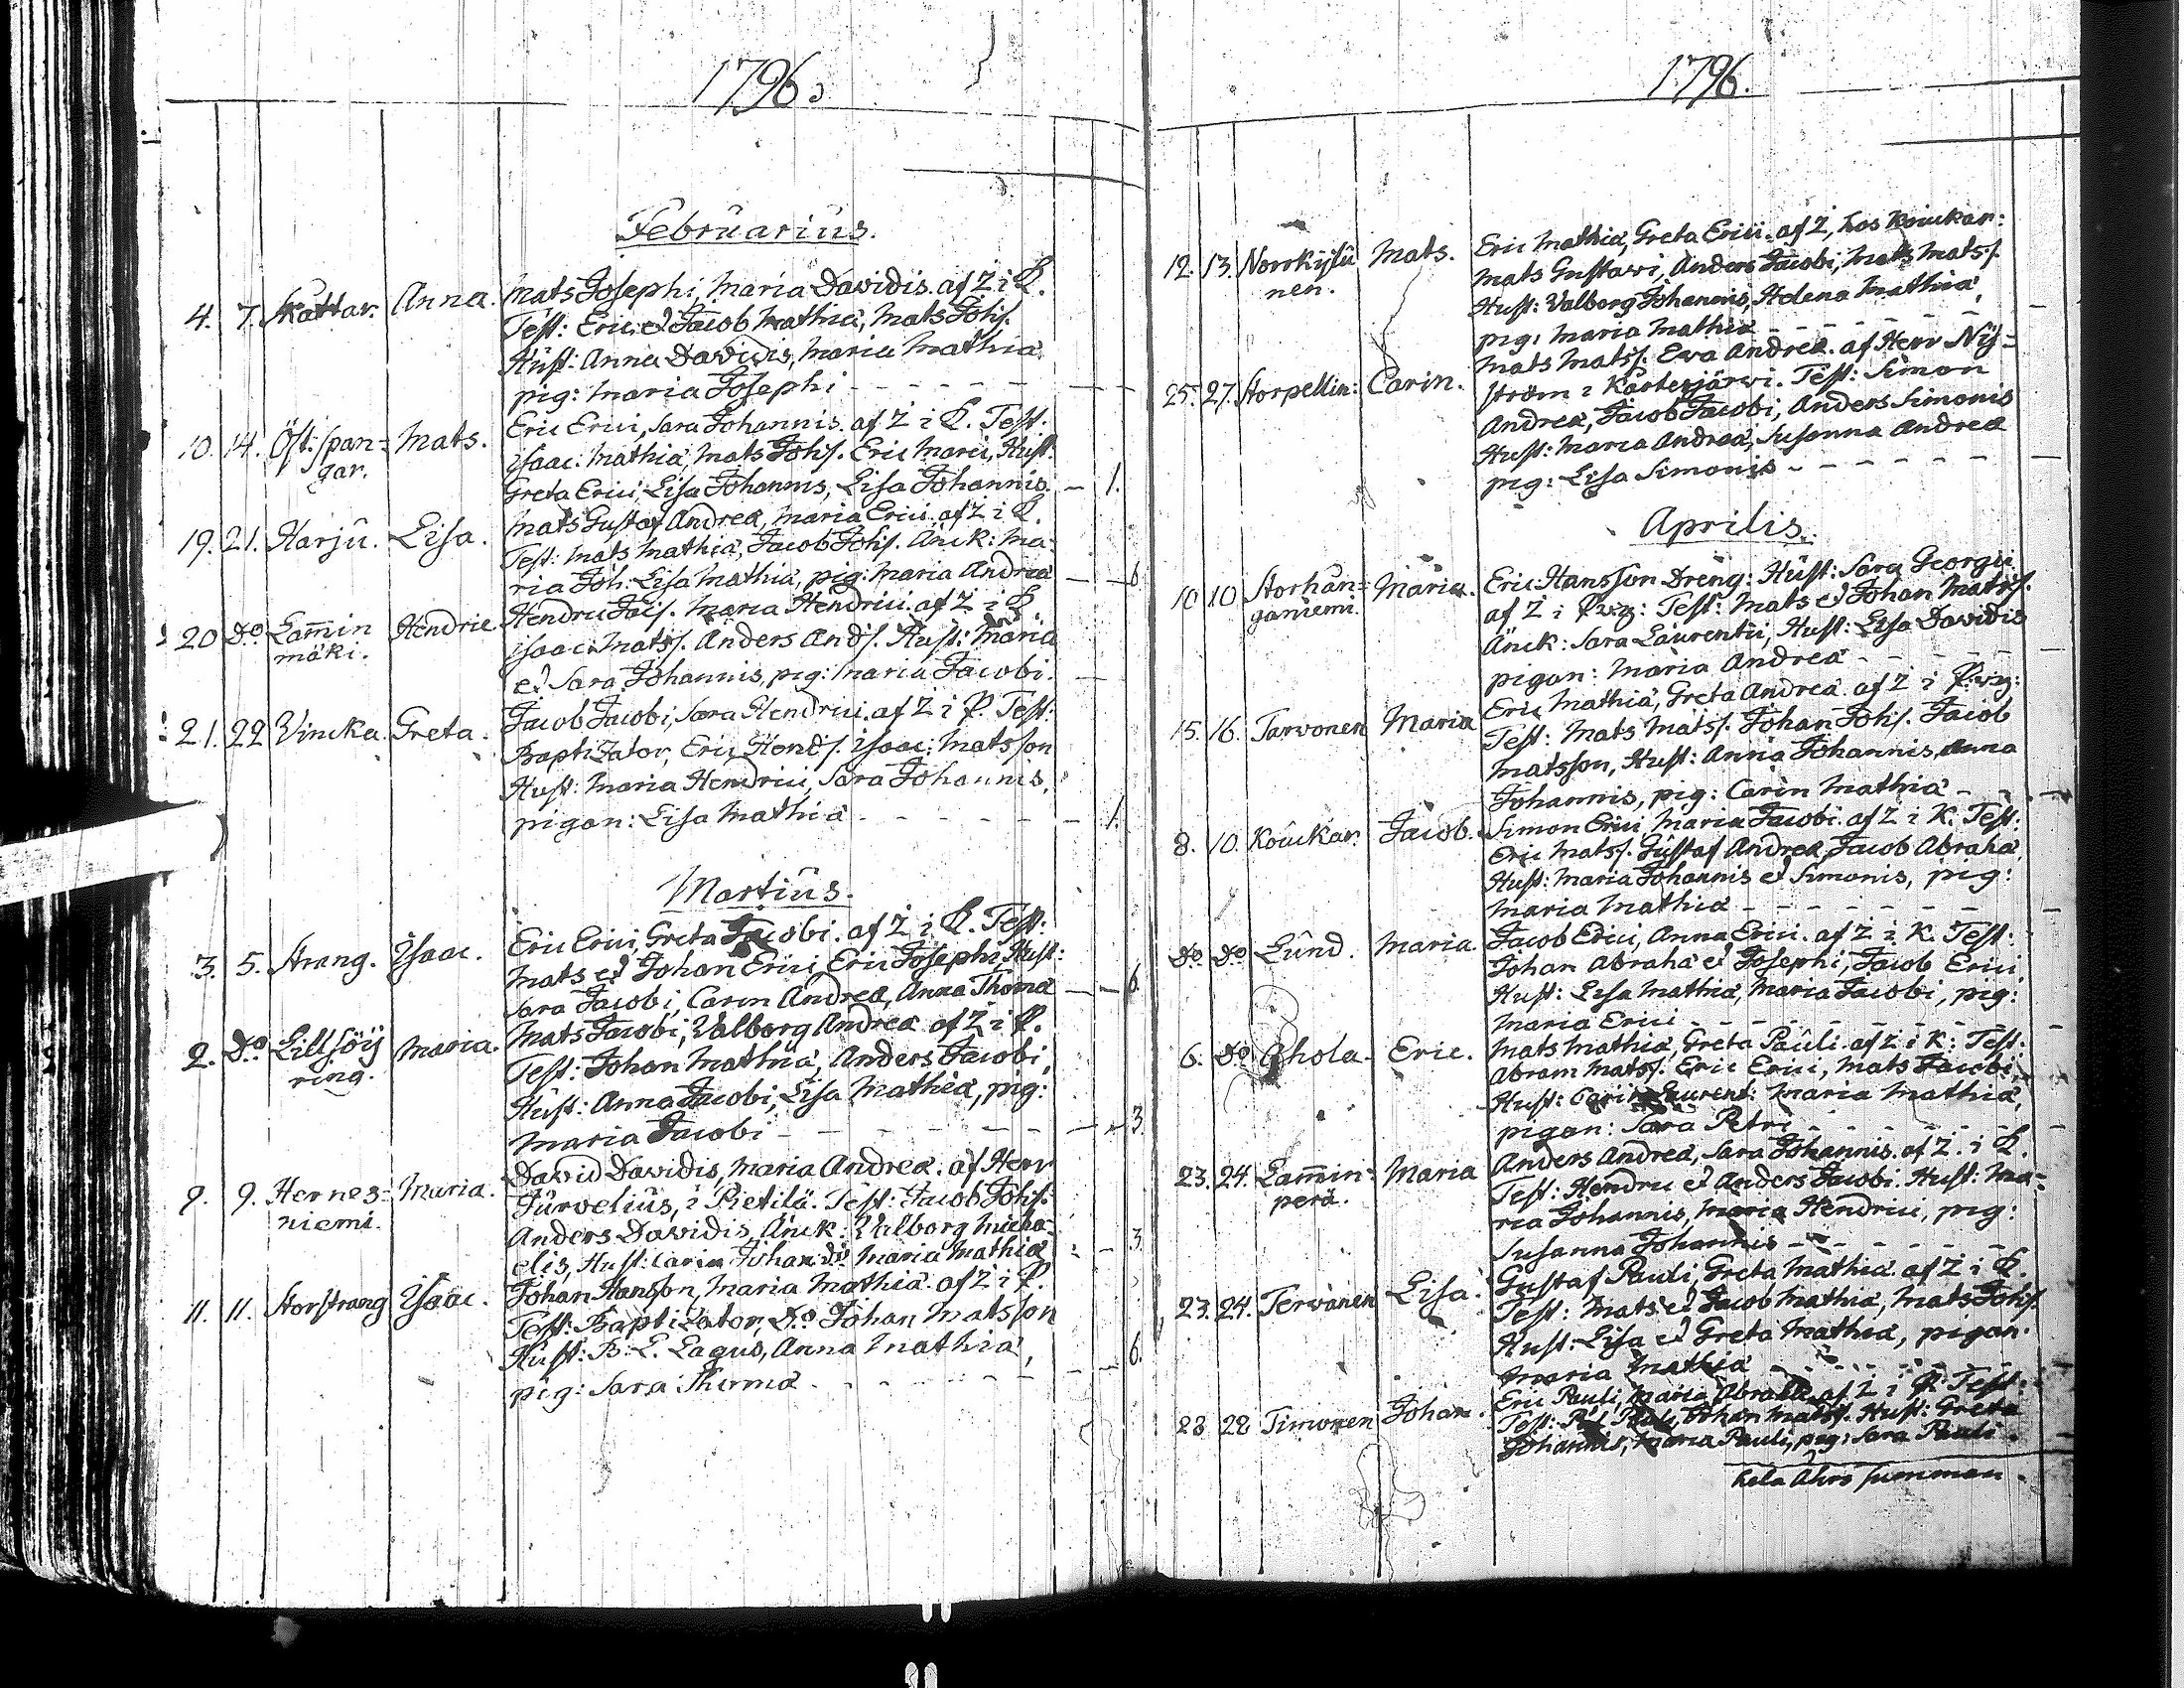 1796.
Februarius.
4. 7. Skattar. Anna. Mats Josephi, Maria Davidis. af Z i P.
Test: Eric et Jacob Mathiæ, Mats Johs.
Hust: Anna Davidis, Maria Mathiæ.
pig: Maria Josephi - - - - - -
10. 14. Öst: span= Mats. Eric Erici, Sara Johannis. af Z i P. Test.
gar. Isaac. Mathiæ, Mats Johs. Eric Marci, Hust.
Greta Erici, Lisa Johannis, Lisa Johannis. - 1.
19. 21. Harju. Lisa. Mats Gustaf Andreæ, Maria Erici. af Z i P.
Test: Mats Mathiæ, Jacob Johs. Änck: Ma=
ria Joh: Lisa Mathiæ, pig: Maria Andreæ - 6
20 Do Lam̅in Hendric Hendric Jacs. Maria Hendrici. af Z i P.
mäki. Isaac Matss. Anders Ands. Hust: Maria
et Sara Johannis, pig: Maria Jacobi. -
21. 22 Vincka. Greta. Jacob Jacobi, Sara Hendrici. af Z i P. Test:
Baptizator, Eric Hends. Isaac: Matsson
Hust: Maria Hendrici, Sara Johannis,
pigan: Lisa Mathiæ - - - - - 1.
Martius.
3. 5. Strang. Isaac. Eric Erici, Greta Jacobi. af Z i P. Test:
Mats et Johan Erici, Eric Josephi, Hust:
Sara Jacobi, Carin Andreæ, Anna Thomæ - 6.
2. Do Lillsöy Maria. Mats Jacobi, Valborg Andreæ af Z i P.
ring. Test: Johan Mathiæ, Anders Jacobi,
Hust: Anna Jacobi, Lisa Mathiæ, pig:
Maria Jacobi - - - - - 3.
9. 9. Hernes= Maria. David Davidis, Maria Andreæ. af Herr
niemi. Jurvelius, i Pietilä. Test: Jacob Johs.
Anders Davidis, Änck: Valborg Micha=
elis, Hust: Carin Johan. Do Maria Mathiæ - 3
11. 11. Storstrang Isaac. Johan Hansson, Maria Mathiæ. af Z i P.
Test: Baptizator, Do Johan Matsson
Hust: B: L. Lagus, Anna Mathiæ, - 6.
pig: Sara Thomæ - - - - -
1796.
12. 13. Norrkylu Mats. Eric Mathiæ, Greta Erici. af Z, hos Kouckar:
nen. Mats Gustavi, Anders Jacobi, Mats Matss.
Hust: Valborg Johannis, Helena Mathiæ,
pig: Maria Mathiæ - - - - -
25. 27. Storpellin: Carin. Mats Matss. Eva Andreæ. af Herr Ny=
ström i Kårtesjärwi. Test: Simon
Andreæ, Jacob Jacobi, Anders Simonis
Hust: Maria Andreæ, Susanna Andreæ
pig: Lisa Simonis - - - - -
Aprilis.
10 10 Storhan= Maria. Eric: Hansson Dreng: Hust: Sara Georgii
ganiemi. af Z i Test: Mats et Johan Matss.
Änck: Sara Laurentii, Hust: Lisa Davidis
pigan: Maria Andreæ - - - - -
15. 16. Tarvonen Maria Eric Mathiæ, Greta Andreæ. af Z i
Test: Mats Matss. Johan Johs. Jacob
Matsson, Hust: Anna Johannis, Anna
Johannis, pig: Carin Mathiæ - -
8. 10. Kouckar. Jacob. Simon Erici, Maria Jacobi. af Z i K. Test:
Eric Matss. Gustaf Andreæ, Jacob Abrahæ,
Hust: Maria Johannis et Simonis, pig:
Maria Mathiæ - - - - -
Do Do Lund. Maria. Jacob Erici, Anna Erici. af Z i K. Test:
Johan Abrahæ et Josephi, Jacob Erici
Hust: Lisa Mathiæ, Maria Jacobi, pig:
Maria Erici - - - - -
6. Do Ahola. Eric. Mats Mathiæ, Greta Pauli. af Z i K: Test:
Abram Matss. Eric Erici, Mats Jacobi,
Hust: Carin Laurent: Maria Mathiæ,
pigan: Sara Petri - - - - -
23. 24. Lam̅in= Maria Anders Andreæ, Sara Johannis. af Z. i P.
perä. Test: Hendric et Anders Jacobi. Hust: Ma=
ria Johannis, Maria Hendrici, pig:
Susanna Johannis - - - - -
23. 24. Tervonen Lisa. Gustaf Pauli, Greta Mathiæ. af Z i P.
Test: Mats et Jacob Mathiæ, Mats Johs.
Hust: Lisa et Greta Mathiæ, pigan.
Maria Mathiæ - - - - -
28 28 Timonen Johan. Eric Pauli, Maria Abrahæ af Z i P. Test.
Test: Johan Matss. Hust: Greta
Johannis, Maria Pauli, pig: Sara Pauli.
hela Åhrs summan.